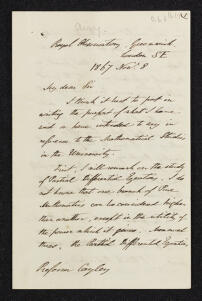 Airy
Royal Observatory Greenwich
London S.E.
1867 Nov. 8
My dear Sir
I think it best to put in
writing the purport of what I have
said or have intended to say in
reference to the Mathematical Studies
in the University.
First, I will remark on the study
of Partial Differential Equations. I do
not know that one branch of Pure
Mathematics can be considered higher
than another, except in the utility of
the power which it gives. Measured
thus, the Partial Differential Equations
Professor Cayley